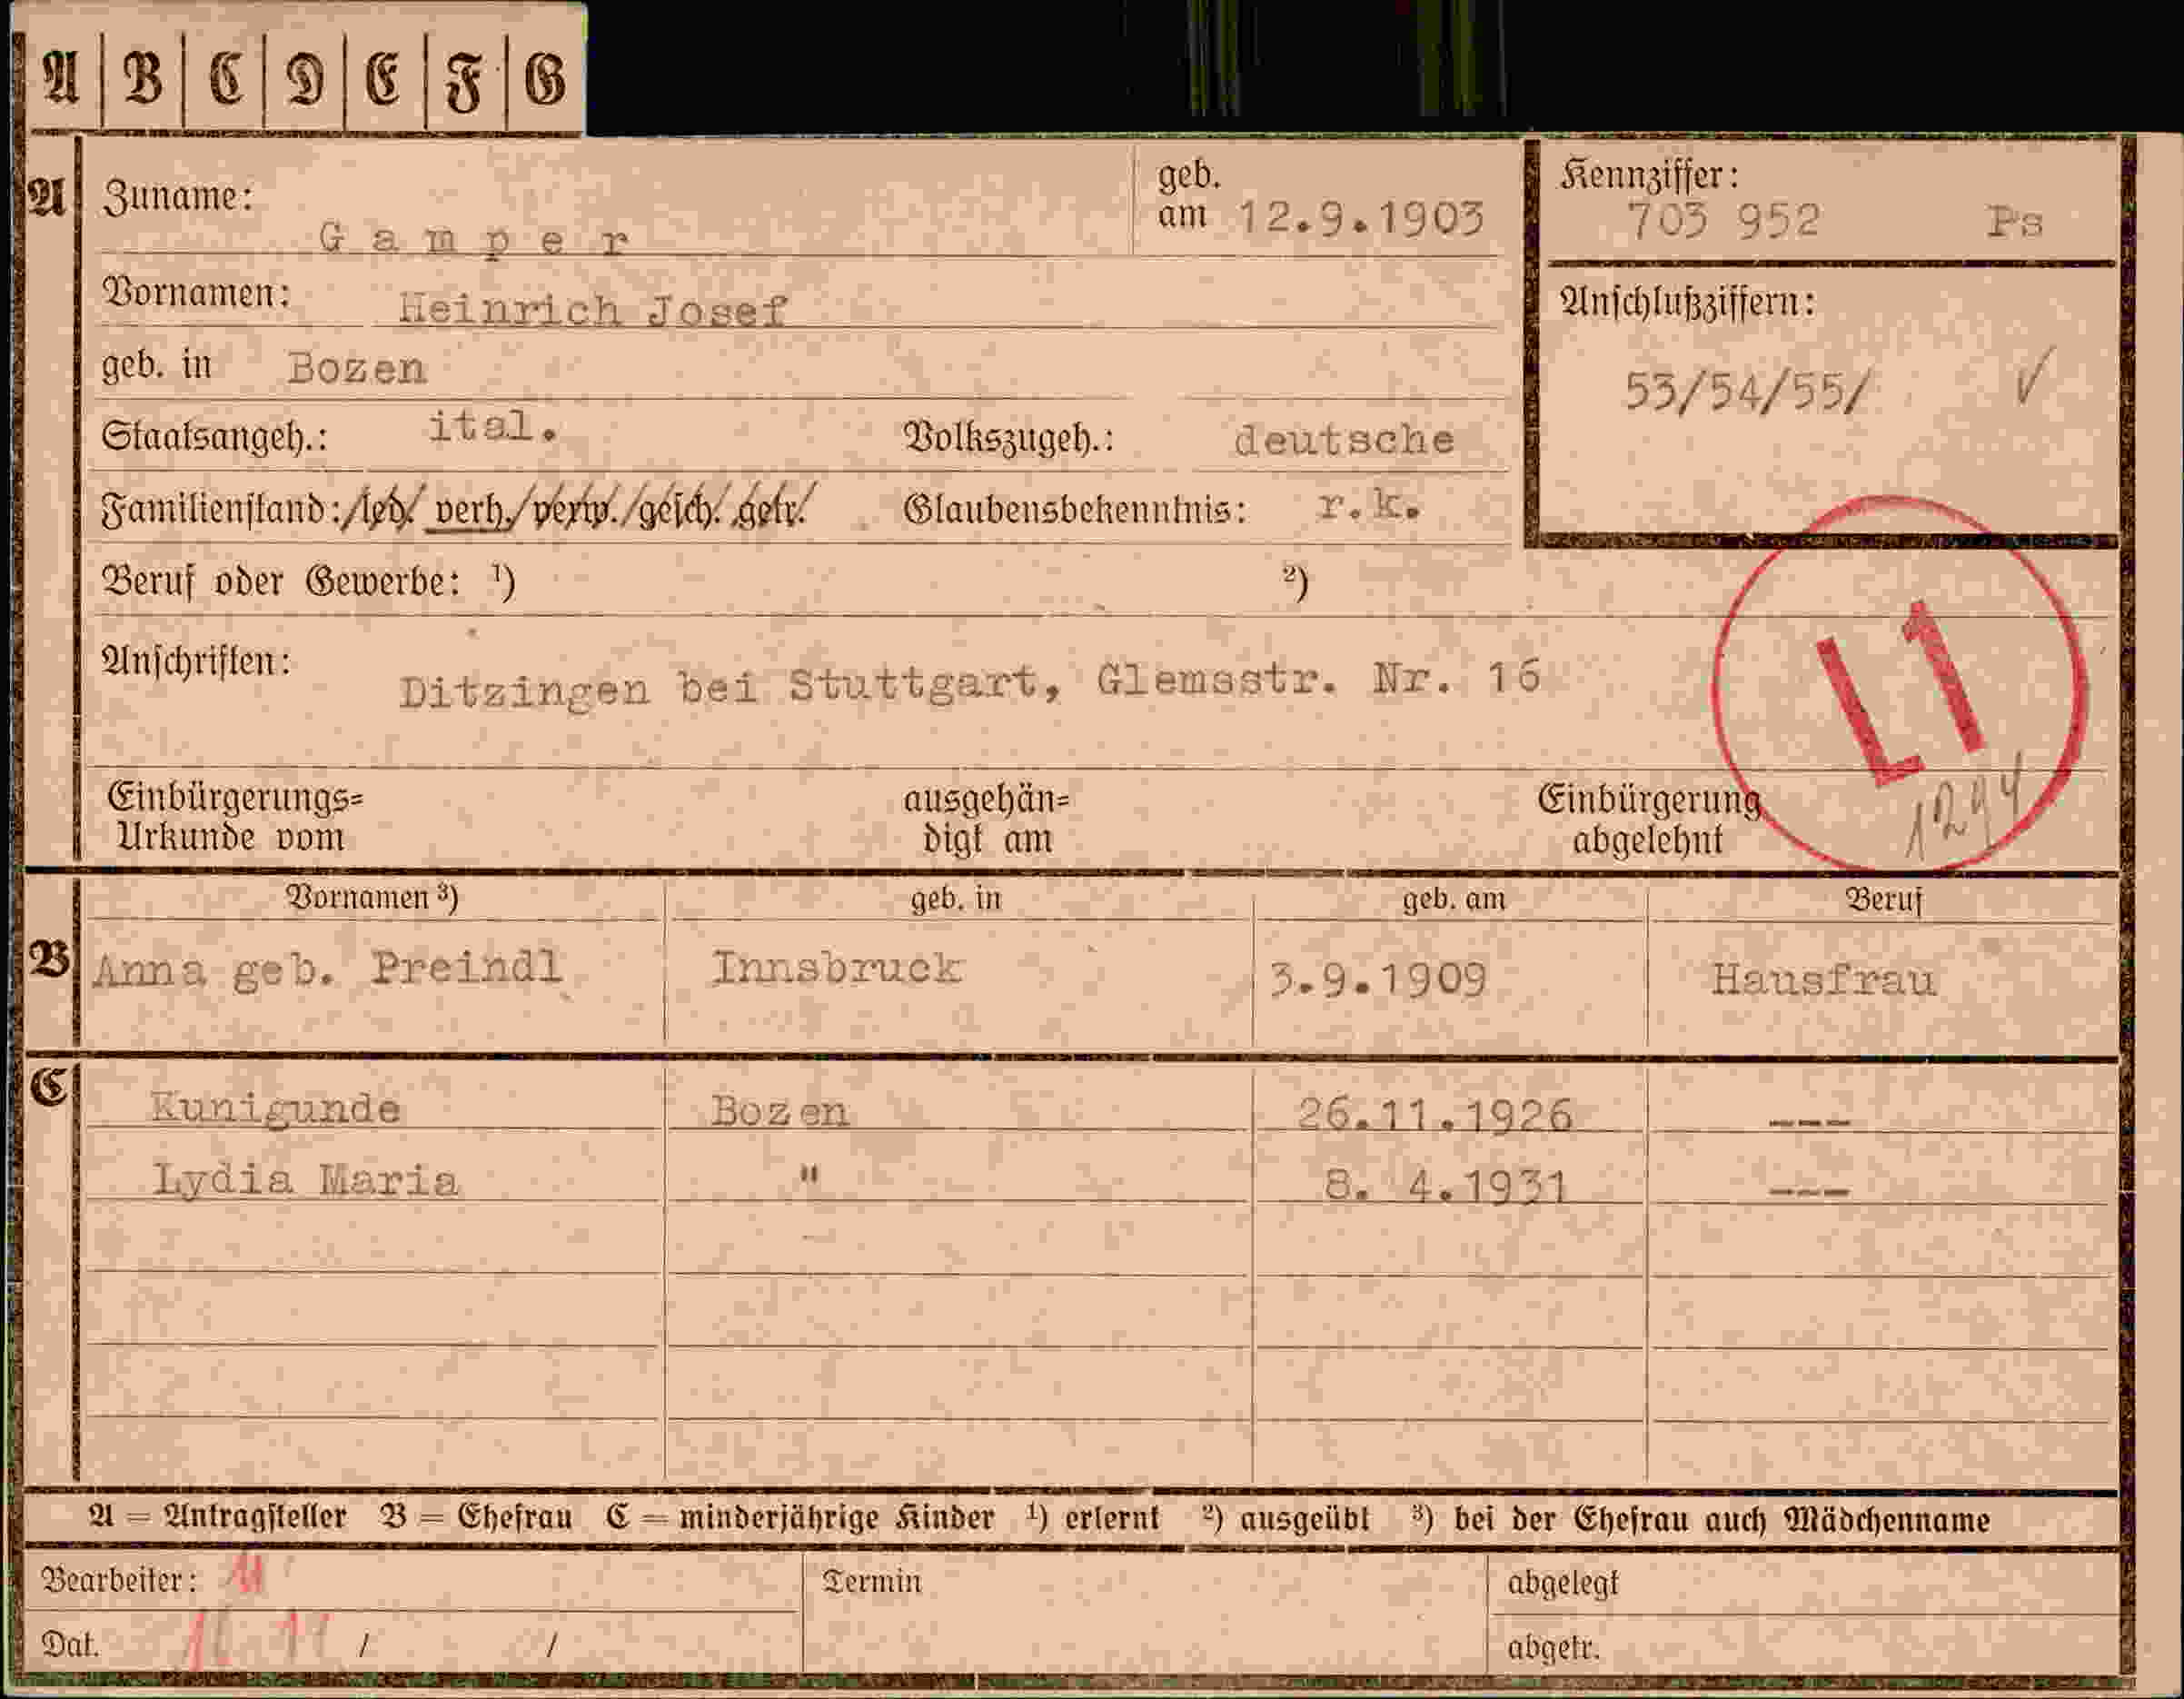 A B C D E F G
A Zuname: Gamper geb. am 12.9.1903
Kennziffer: 703 952 Ps
Vornamen: Heinrich Josef
Anschlußziffern:
53/54/55/ ✓
geb. in Bozen
Staatsangeh.: ital. Volkszugeh.: deutsche
Familienstand: /led. verh./verw./gesch. getr. Glaubensbekenntnis: r.k.
Beruf oder Gewerbe: ¹) ²)
L1
Anschriften: Ditzingen bei Stuttgart, Glemsstr. Nr. 16
1294
Einbürgerungs= ausgehän= Einbürgerung
Urkunde vom digt am abgelehnt
Vornamen ³) geb. in geb. am Beruf
B Anna geb. Preindl Innsbruck 3.9.1909 Hausfrau
C Kunigunde Bozen 26.11.1926 ---
Lydia Maria " 8. 4.1931 ---
A = Antragsteller B = Ehefrau C = minderjährige Kinder ¹) erlernt ²) ausgeübt ³) bei der Ehefrau auch Mädchenname
Bearbeiter: Termin abgelegt
Dat. / / abgetr.